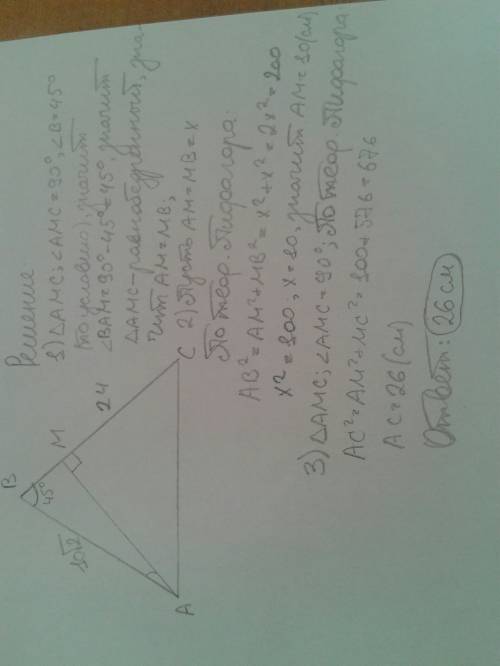 Решение
1) △AMC; ∠AMC=90°, ∠B=45°
(по условию), значит
∠BAM=90°-45°=45°, значит
△AMC-равнобедренный, зна-
чит AM=MB;
2) Пусть AM=MB=x
По теор. Пифагора:
AB²=AM²+MB²=x²+x²=2x²=200
x²=100; x=10, значит AM=10(см)
3) △AMC; ∠AMC=90°; По теор. Пифагора:
AC²=AM²+MC²=100+576=676
AC=26(см)
Ответ: 26 см
B
45°
M
24
10√2
A
C